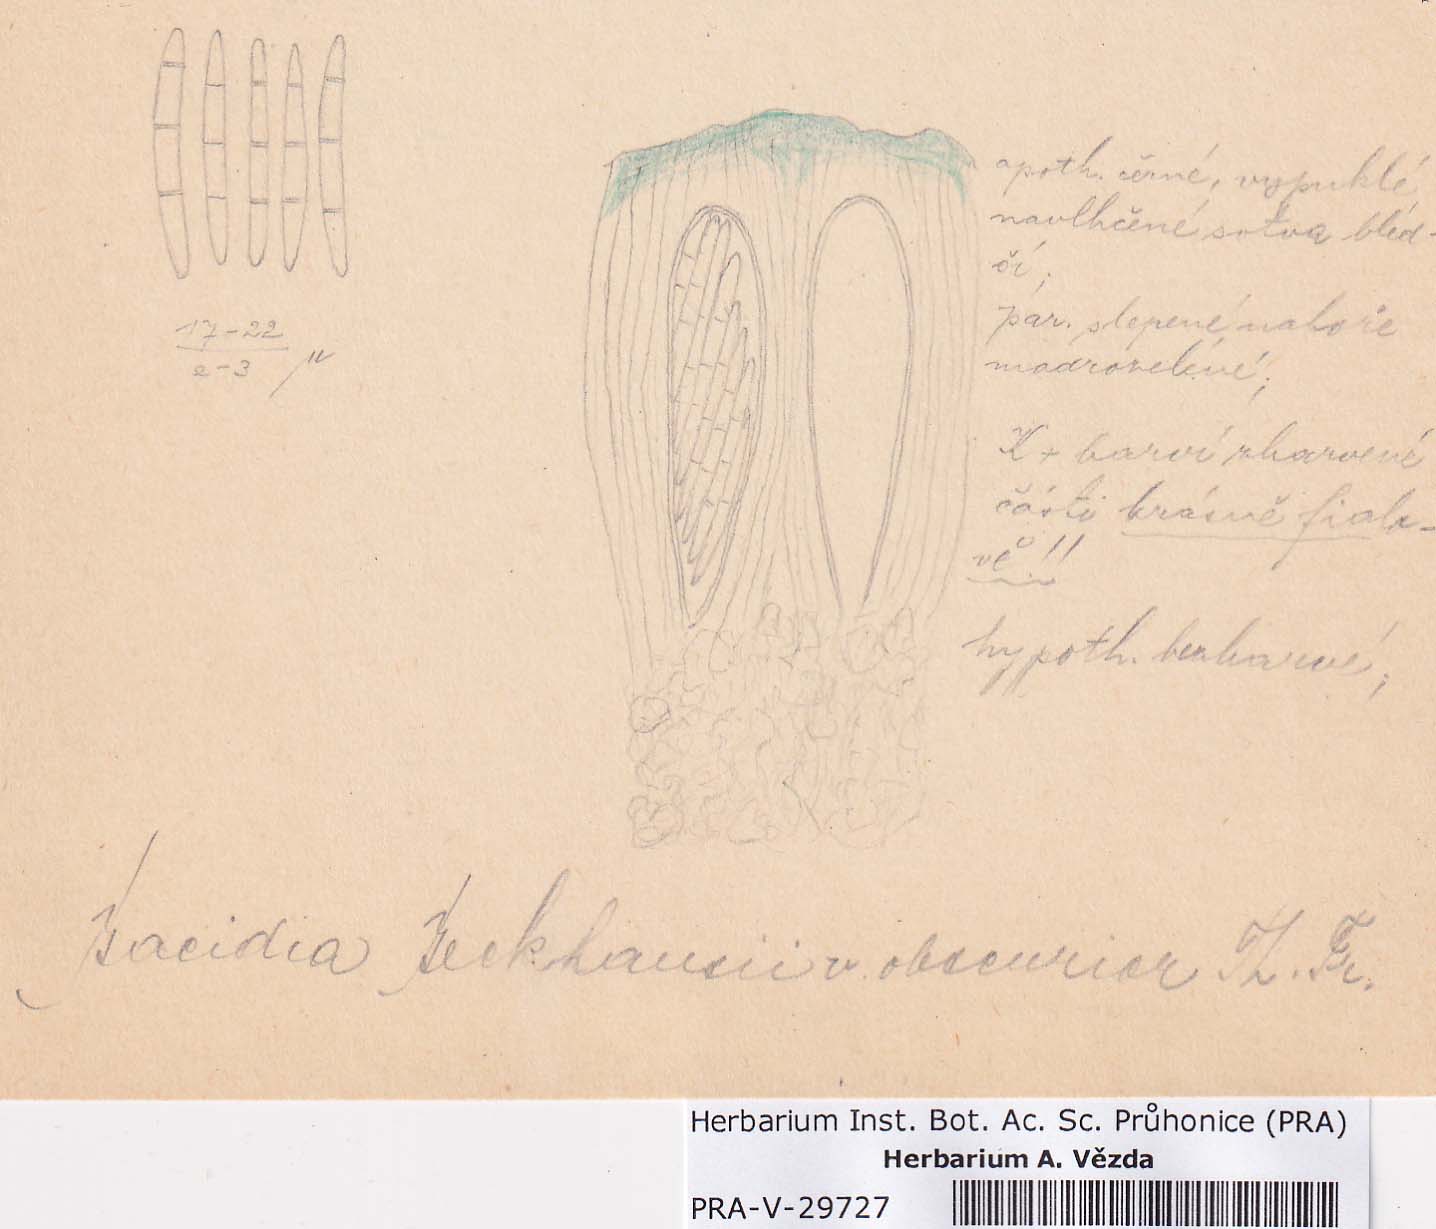 17-22
2-3 µ
apoth. černé, vypuklé
navlhčené sotva bled-
ší;
par. slepené nahoře
modrozelené;
K + barví zbarvené
části krásně fialo-
vě !!
hypoth. bezbarvé;
Bacidia Beckhausii v. obscurior Th. Fr.
Herbarium Inst. Bot. Ac. Sc. Průhonice (PRA)
Herbarium A. Vězda
PRA-V-29727